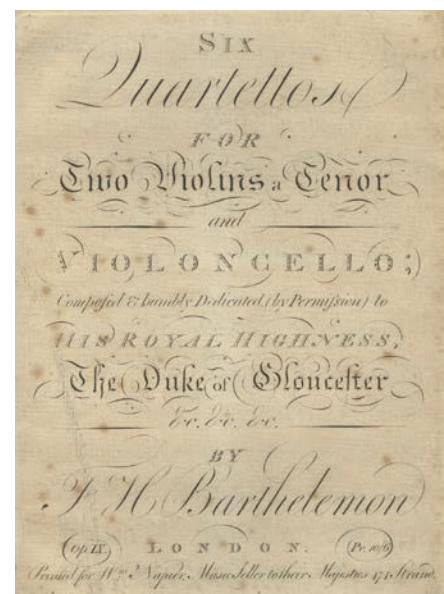 SIX
Quartettos
FOR
Two Violins a Tenor
and
VIOLONCELLO;
Composed & humbly Dedicated (by Permiſsion) to
HIS ROYAL HIGHNESS,
The Duke of Glouceſter
&c. &c. &c.
BY
F H Barthelemon
Op. IX. LONDON. (Pr. 10/6)
Printed for Wm. Napier Music Seller to their Majesties 474 Strand.